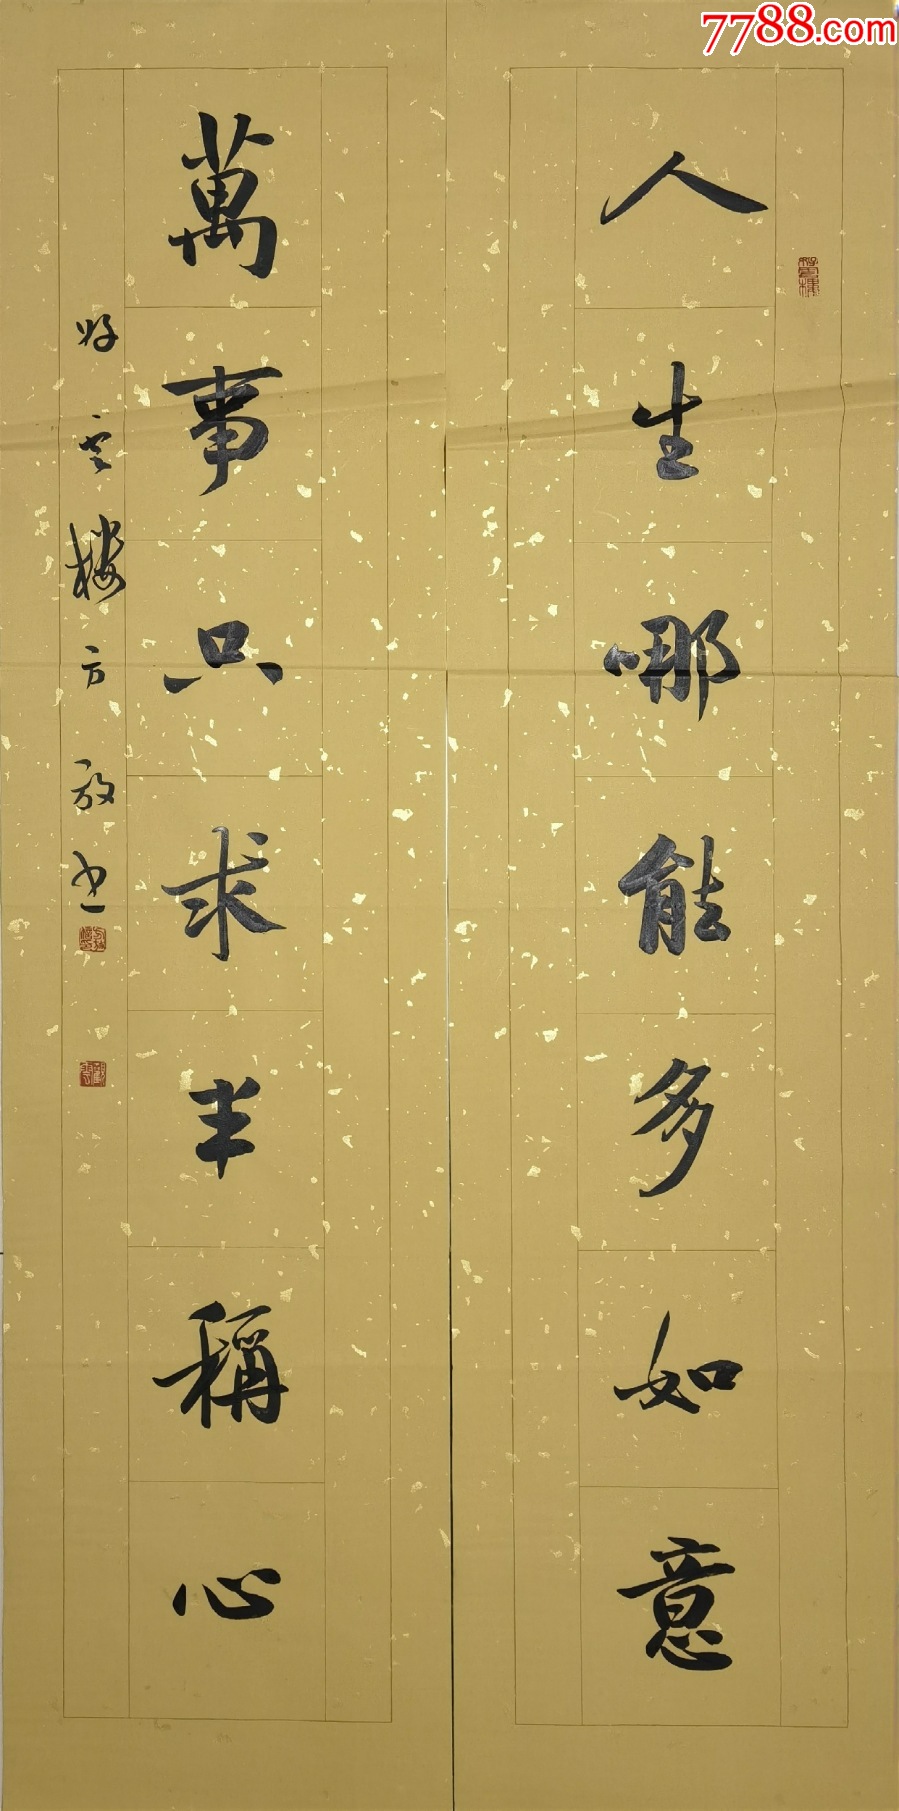 7788.com
人生哪能多如意
萬事只求半稱心
好雲樓方放书